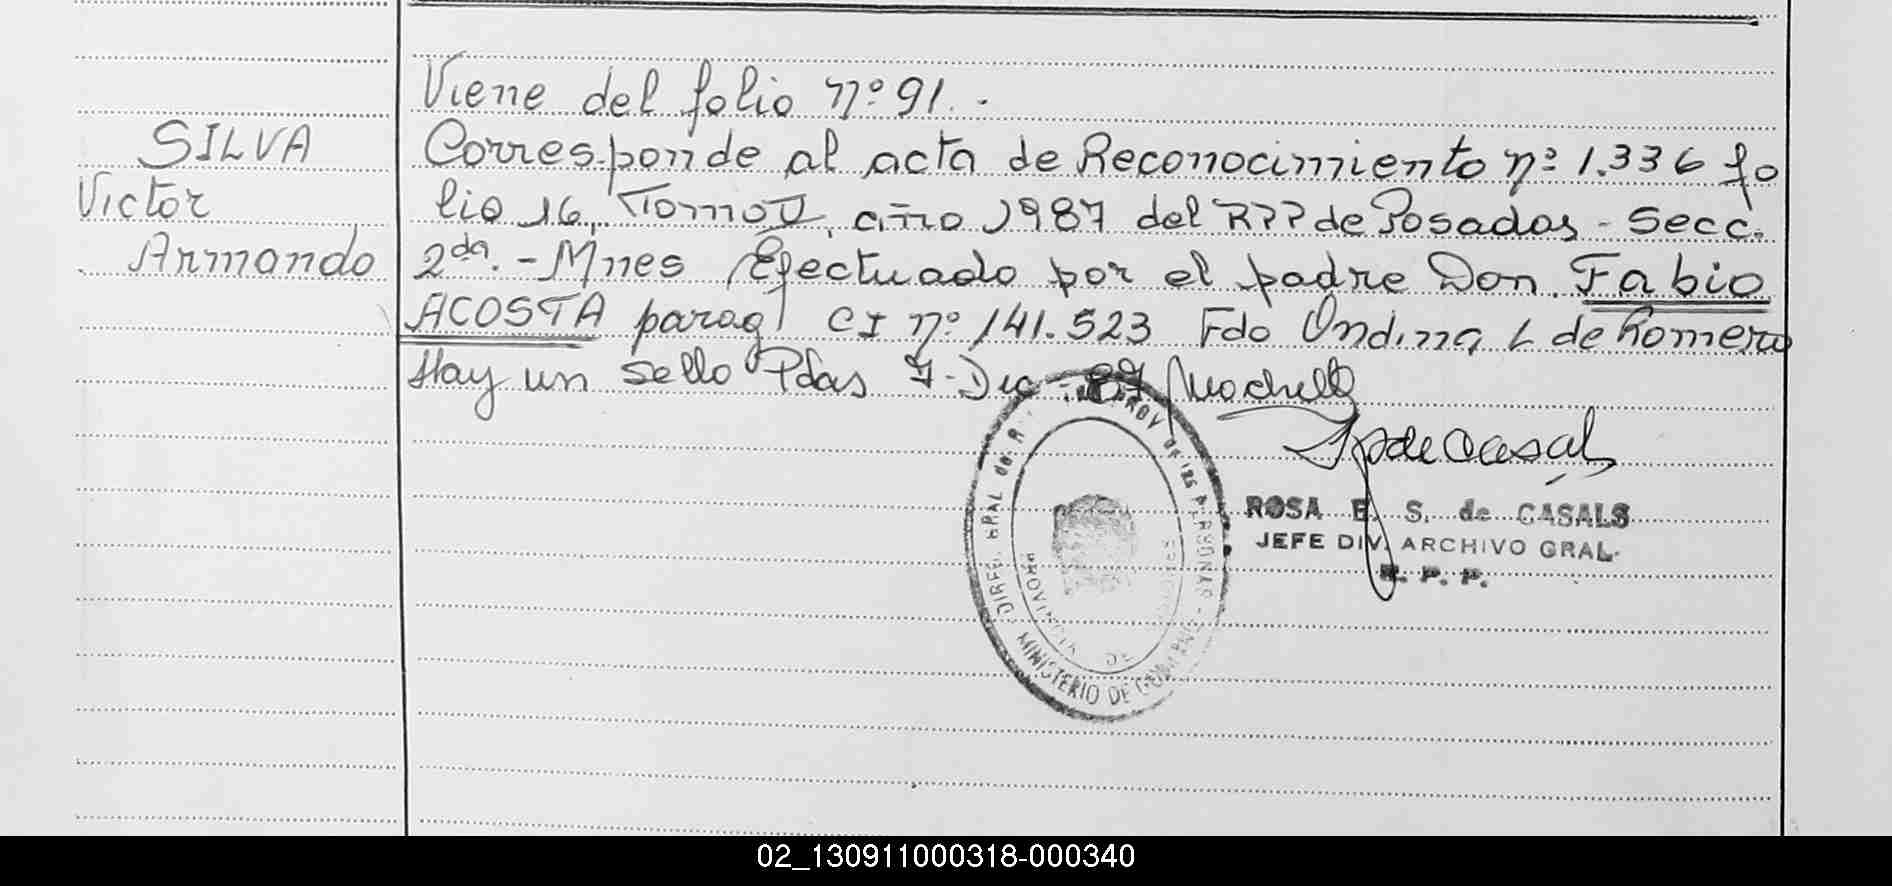 Viene del folio nº 91.-
SILVA
Victor
Armando
Corresponde al acta de Reconocimiento nº 1.336 fo
lio 16, Tomo II, año 1987 del RPP de Posadas - Secc.
2da. - Mnes Efectuado por el padre Don Fabio
ACOSTA parag CI nº 141.523 Fdo Ondina L de Romero
Hay un sello Pdas 7-Dic-87
ROSA E. S. de CASALS
JEFE DIV. ARCHIVO GRAL.
R. P. P.
MINISTERIO DE GOBIERNO
02_130911000318-000340